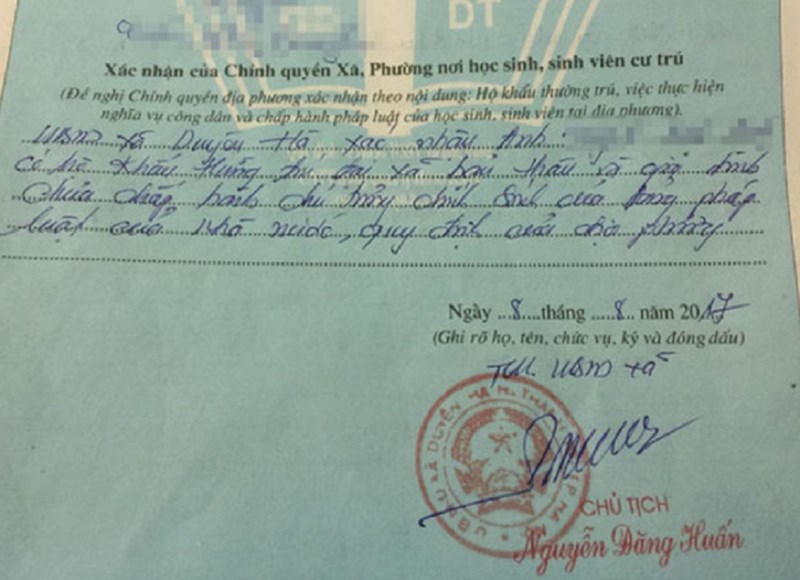 DT
Xác nhận của Chính quyền Xã, Phường nơi học sinh, sinh viên cư trú
(Đề nghị Chính quyền địa phương xác nhận theo nội dung: Hộ khẩu thường trú, việc thực hiện
nghĩa vụ công dân và chấp hành pháp luật của học sinh, sinh viên tại địa phương).
UBND xã Duyên Hà xác nhận
có hộ khẩu thường trú tại xã bản thân và gia đình
chưa chấp hành chủ trương chính sách của Đảng pháp
luật của Nhà nước, quy định của địa phương
Ngày 8 tháng 8 năm 2017
(Ghi rõ họ, tên, chức vụ, ký và đóng dấu)
TM. UBND xã
U.B.N.D XÃ DUYÊN HÀ H. THANH TRÌ T.P HÀ
CHỦ TỊCH
Nguyễn Đăng Huấn